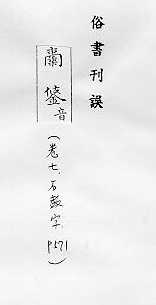 俗書刊誤
鑾音
(卷七.石鼓字
P571)